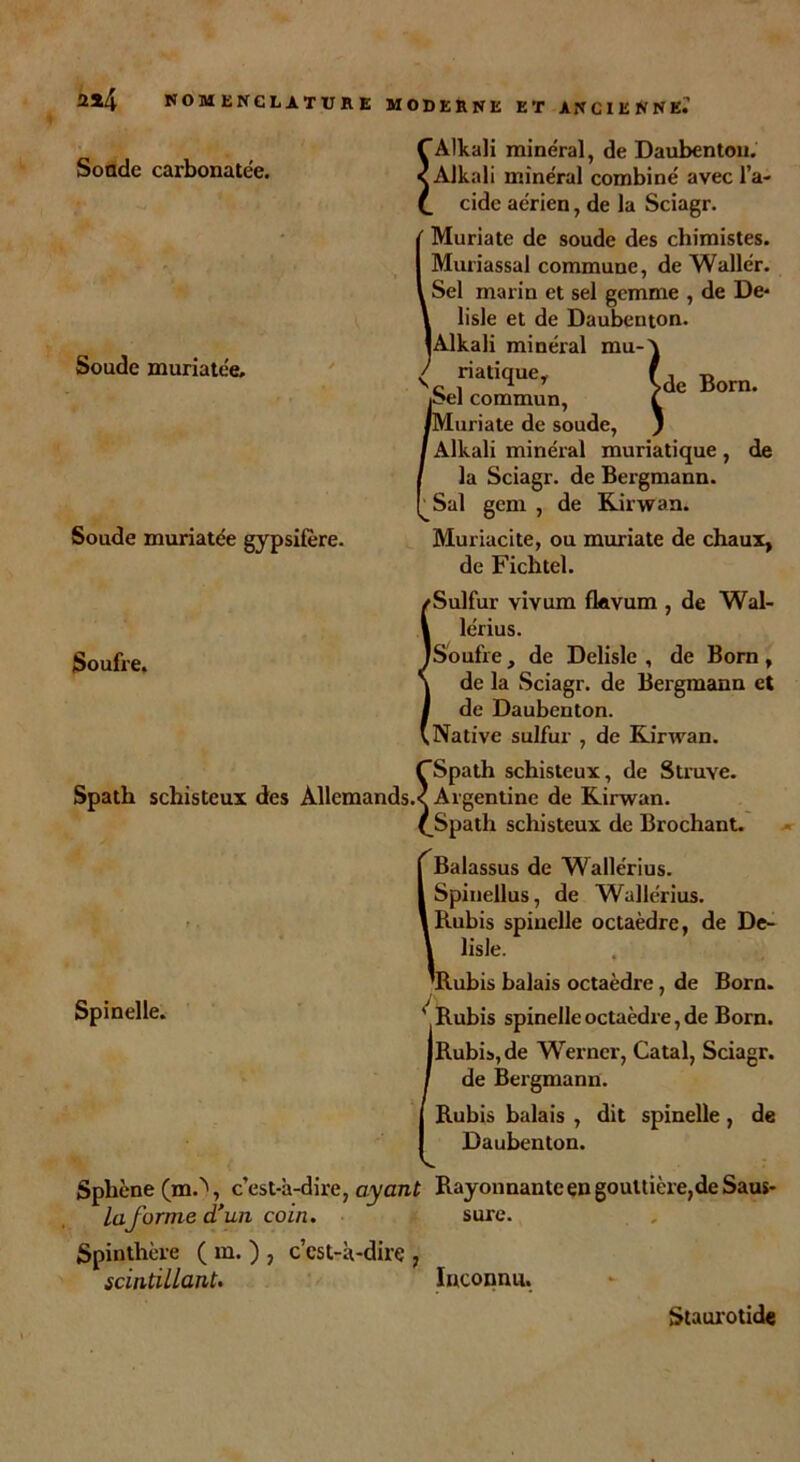 224 NOMENCLATURE MODERNE ET ANCIENNE.
Soude carbonatée.
Alkali minéral, de Daubenton.
Alkali minéral combiné avec l'a-
cide aérien, de la Sciagr.
Soude muriatée.
Muriate de soude des chimistes.
Muriassal commune, de Wallér.
Sel marin et sel gemme , de De-
lisle et de Daubenton.
Alkali minéral mu-
riatique,
Sel commun,
Muriate de soude,
de Born.
Alkali minéral muriatique , de
la Sciagr. de Bergmann.
Sal gem , de Kirwan.
Soude muriatée gypsifère.
Muriacite, ou muriate de chaux,
de Fichtel.
Soufre.
Sulfur vivum flavum , de Wal-
lérius.
Soufre, de Delisle , de Born,
de la Sciagr. de Bergmann et
de Daubenton.
Native sulfur , de Kirwan.
Spath schisteux des Allemands.
Spath schisteux, de Struve.
Argentine de Kirwan.
Spath schisteux de Brochant.
Spinelle.
Balassus de Wallérius.
Spinellus, de Wallérius.
Rubis spinelle octaèdre, de De-
lisle.
Rubis balais octaèdre, de Born.
Rubis spinelle octaèdre, de Born.
Rubis, de Werner, Catal, Sciagr.
de Bergmann.
Rubis balais , dit spinelle, de
Daubenton.
Sphène (m.), c'est-à-dire, ayant
la forme d'un coin.
Rayonnante en gouttière, de Saus-
sure.
Spinthère ( m. ) , c'est-à-dire ,
scintillant.
Inconnu.
Staurotide